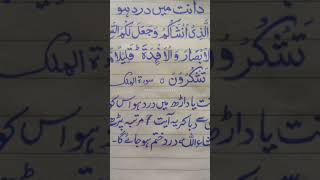 دانت میں درد ہو
الَّذِیْٓ اَنْشَاَکُمْ وَجَعَلَ لَکُمُ
الْاَبْصَارَ وَالْاَفْـِٕدَةَ ؕ قَلِیْلًا
تَشْکُرُوْنَ ○ سورۃ الملک
یا داڑھ میں درد ہو اس کو
دبا کر یہ آیت ۷ مرتبہ پڑھے
اللہ درد ختم ہو جائے گا۔